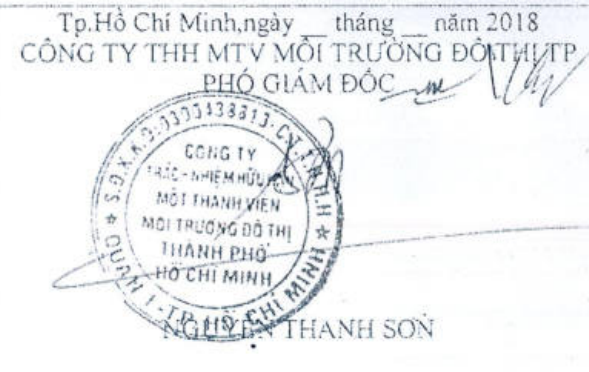 Tp.Hồ Chí Minh,ngày __ tháng __ năm 2018
CÔNG TY THH MTV MÔI TRƯỜNG ĐÔ THỊ TP
PHÓ GIÁM ĐỐC
S.Đ.K.K.D:0300438813-C.T.T.N.H.H
CÔNG TY
TRÁC-NHIỆM HỮU HẠN
MỘT THÀNH VIÊN
MÔI TRƯỜNG ĐÔ THỊ
THÀNH PHỐ
HỒ CHÍ MINH
QUẬN 1-TP.HỒ CHÍ MINH
NGUYỄN THANH SƠN